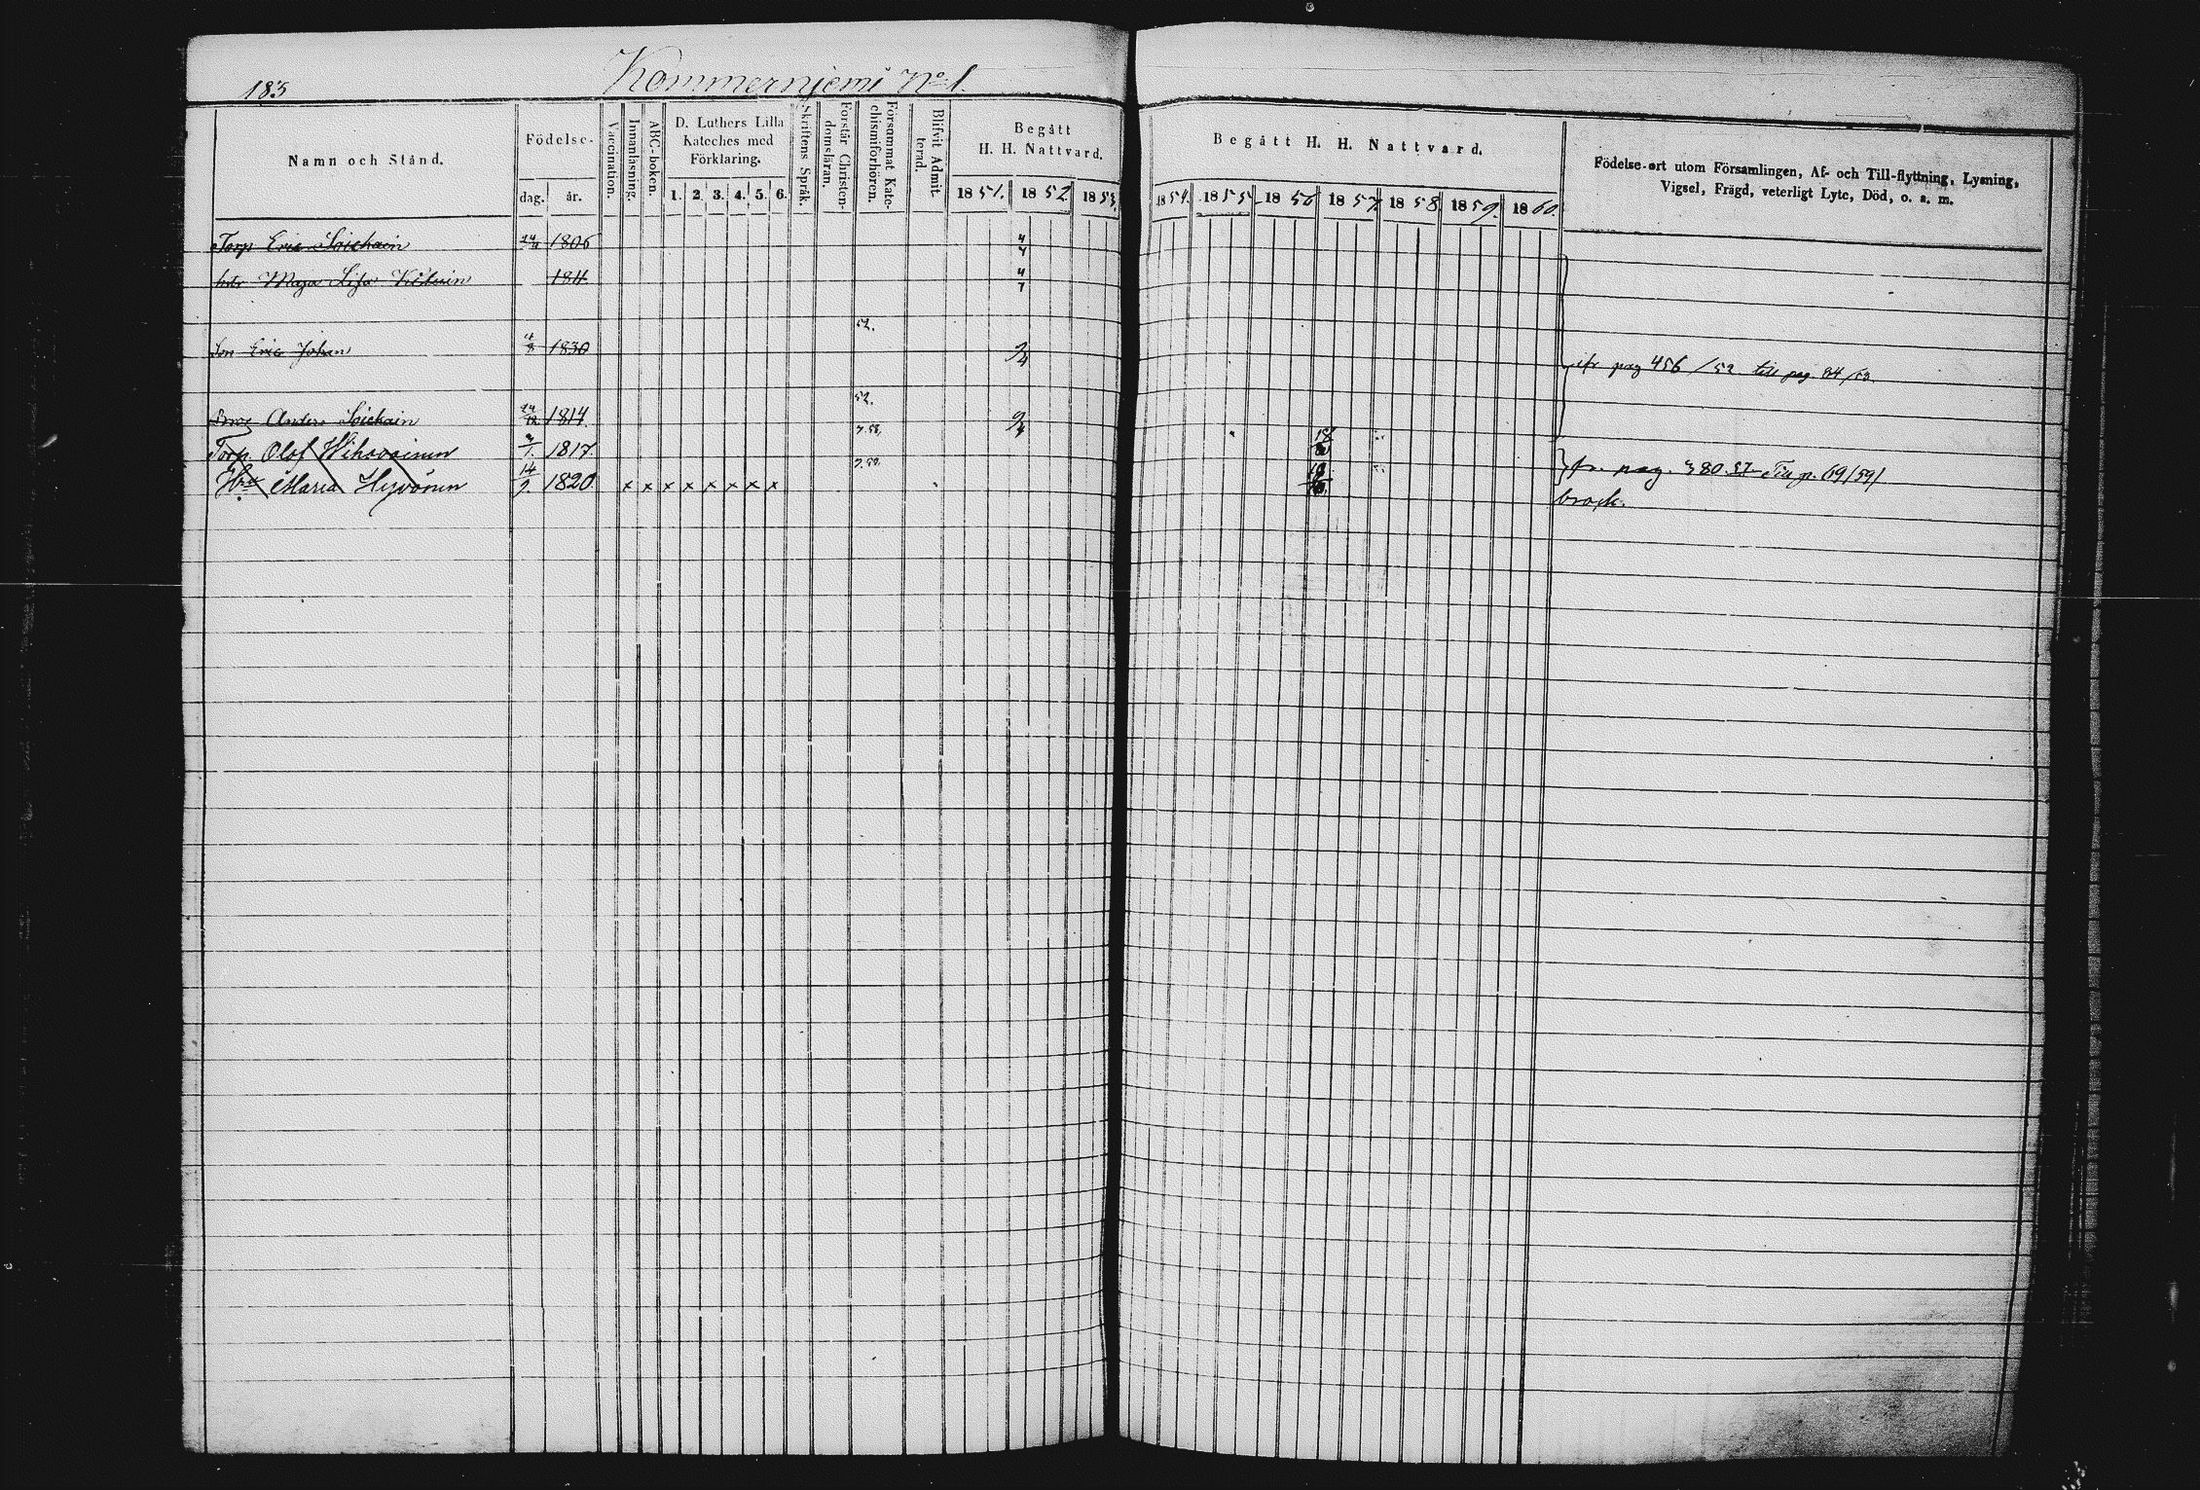 183
Kommerniemi No 1.
Namn och Stånd.
Födelse-
dag. år.
Vaccination.
Innanläsning.
ABC-boken.
D. Luthers Lilla
Kateches med
Förklaring.
1. 2. 3. 4. 5. 6.
Skriftens Språk.
Förstår Christen-
domsläran.
Försummat Kate-
chismiförhören.
Blifvit Admit-
terad.
Begått
H. H. Nattvard.
1851. 1852 1853.
Begått H. H. Nattvard.
1854. 1855 1856 1857. 1858 1859. 1860.
Födelse-ort utom Församlingen, Af- och Till-flyttning, Lysning,
Vigsel, Frägd, veterligt Lyte, Död, o. s. m.
Torp Eric Loichain 1806
Maja Lisa 1811
52.
Son Eric Johan 1830
pag 456 /52 till pag. 84/53.
52.
Anders Loichain 1814
Torp. Olof Wihavainen 1817.
Hu Maria Hyvönen 14/9. 1820. x x x x x x x x
fr. pag. 380. 57 Till p. 69/59/